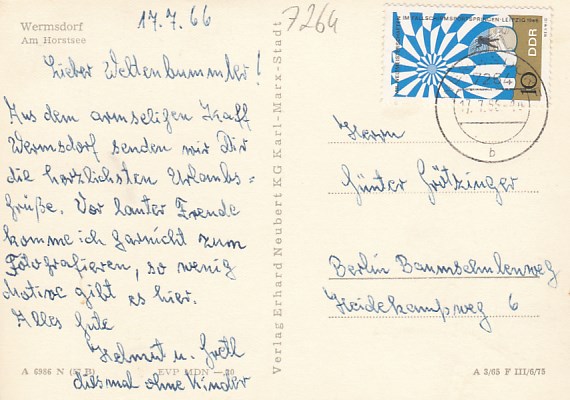 Wermsdorf
Am Horstsee
17.7.66
7264
Lieber Weltenbummler!
Aus dem armseligen Kaff
Wermsdorf senden wir Dir
die herzlichsten Urlaubs=
grüße. Vor lauter Freude
komme ich garnicht zum
Fotografieren, so wenig
Motive gibt es hier.
Alles Gute
Helmut u. Gretl
diesmal ohne Kinder
A 6986 N (57 B) EVP MDN —.20
Verlag Erhard Neubert KG Karl-Marx-Stadt
IM FALLSCHIRMSPORTSPRINGEN LEIPZIG 1966
DDR
10
b
Herrn
Günter Grötzinger
Berlin Baumschulenweg
Heidekampweg 6
A 3/65 F III/6/75